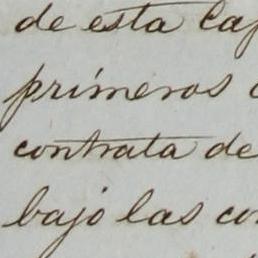 de esta Cap
primeros c
contrata de
bajo las con